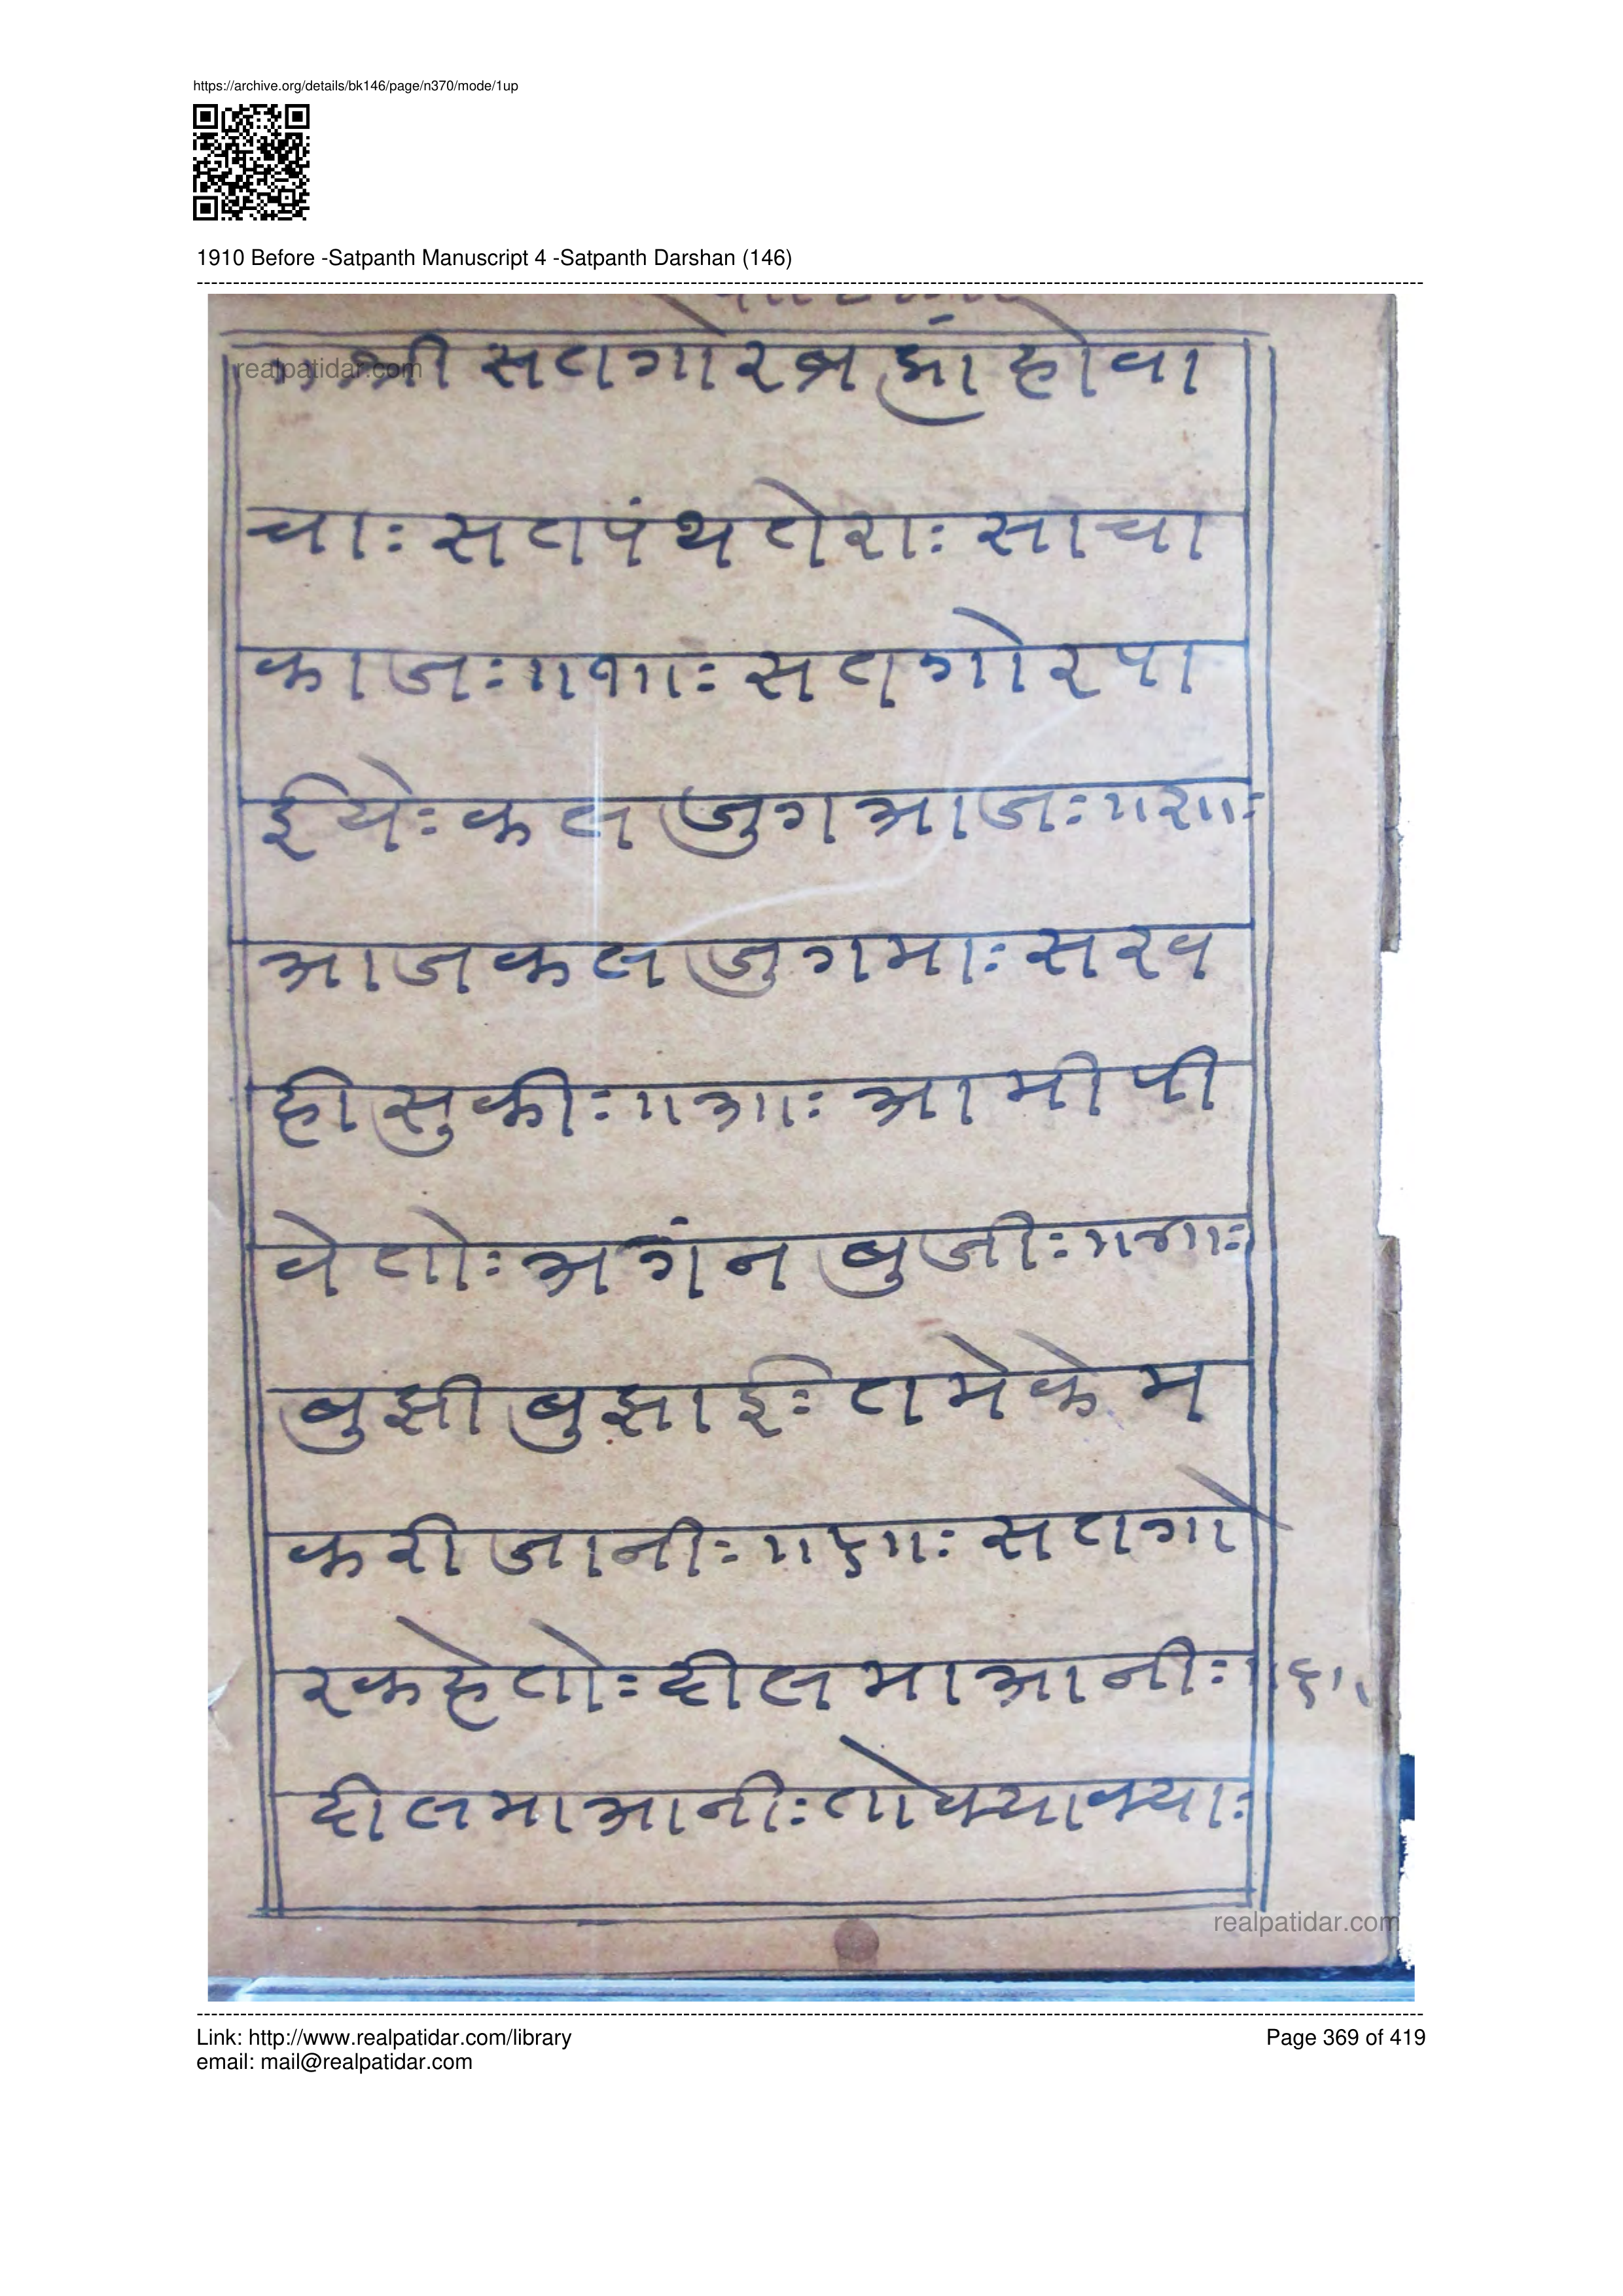 https://archive.org/details/bk146/page/n370/mode/1up
1910 Before -Satpanth Manuscript 4 -Satpanth Darshan (146)
realpatidar.com
श्री सतगोर ब्रह्मां होवा
चाः सतपंथ तेराः साचा
काजः ॥१॥ः सतगोर पा
ईयेः कलजुग आजः ॥२॥ः
आज कलजुगमाः सरव
ही सुकीः ॥३॥ः आमी पी
वे तोः अगंन बुजीः ॥४॥ः
बुझी बुझाईः तमे केम
करी जानीः ॥५॥ः सतगो
र कहे तोः दील मा आनीः ॥६॥
दील मा आनीः तो क्या क्याः
realpatidar.com
Link: http://www.realpatidar.com/library
Page 369 of 419
email: mail@realpatidar.com